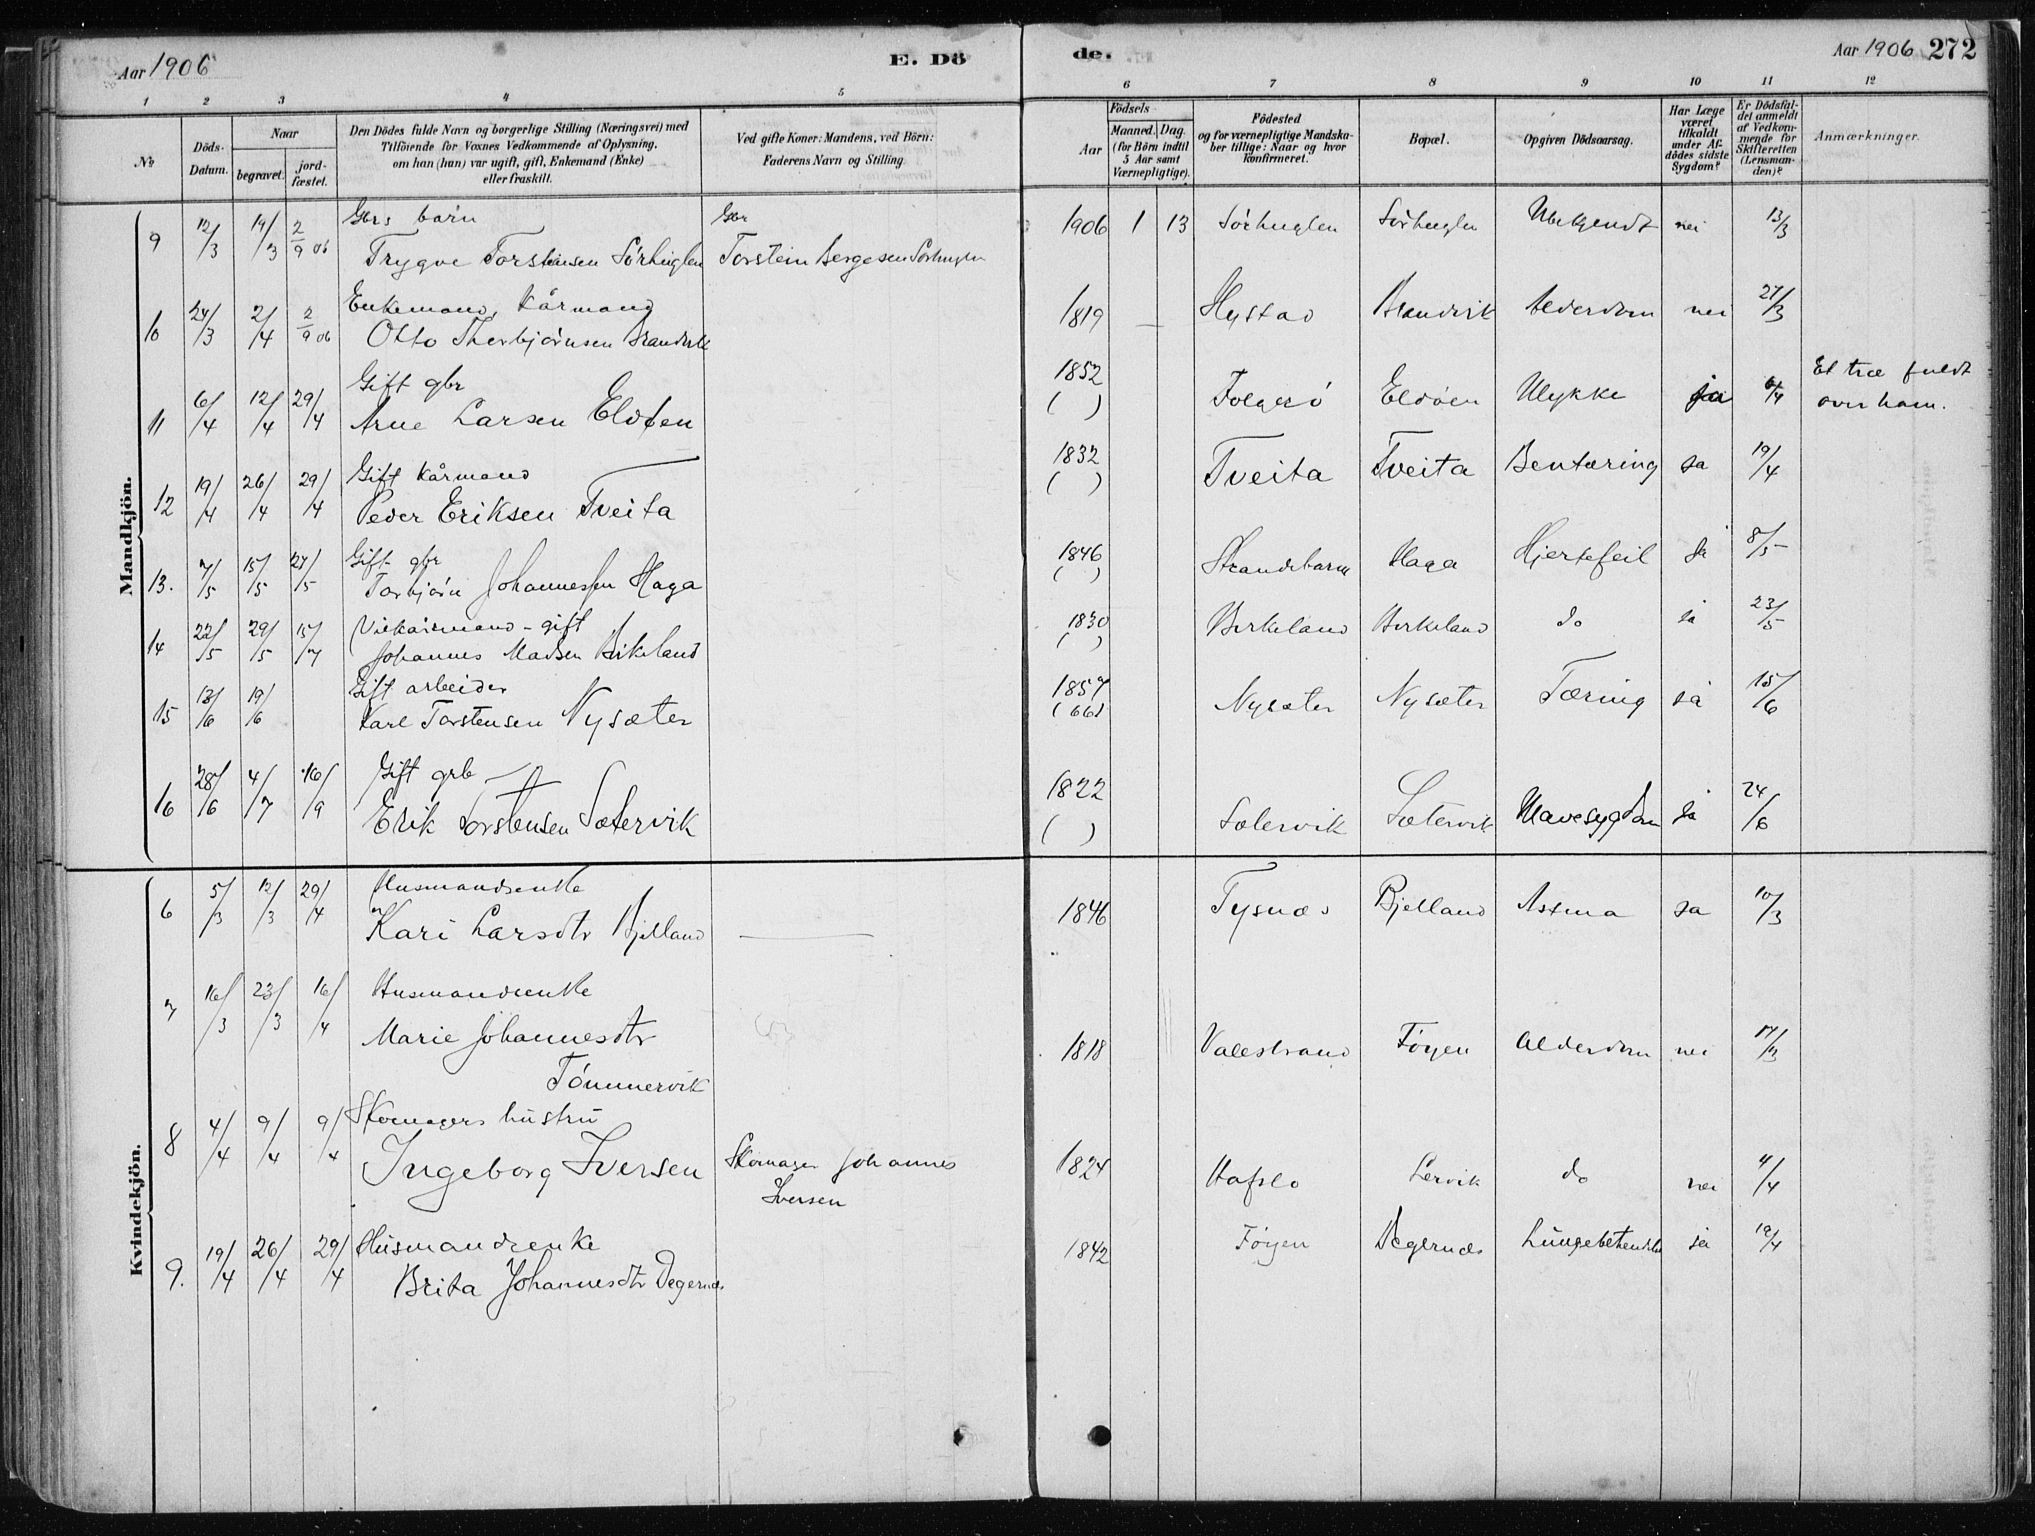 Aar 1906
E. Dö
de.
Aar 1906 272
1 2 3 4 5 6 7 8 9 10 11 12
No
Döds-Datum.
Naar
begravet. jord-fæstet.
Den Dödes fulde Navn og borgerlige Stilling (Næringsvei) med
Tilföiende for Voxnes Vedkommende af Oplysning,
om han (hun) var ugift, gift, Enkemand (Enke)
eller fraskilt.
Ved gifte Koner: Mandens, ved Börn:
Faderens Navn og Stilling.
Födsels
Aar
Maaned. Dag.
(for Börn indtil
5 Aar samt
Værnepligtige).
Födested
og for værnepligtige Mandska-
ber tillige: Naar og hvor
konfirmeret.
Bopæl.
Opgiven Dödsaarsag.
Har Læge
været
tilkaldt
under Af-
dödes sidste
Sygdom?
Er Dödsfal-
det anmeldt
af Vedkom-
mende for
Skifteretten
(Lensman-
den)?
Anmærkninger.
Mandkjön.
Gbrs barn Gbr
9 12/3 19/3 2/9 06 Trygve Torstensen Sørhuglen Torstein Bergesen Sørhuglen 1906 1 13 Sørhuglen Sørhuglen Ubekjendt nei 13/3
Enkemand, Kårmand
10 24/3 2/4 2/9 06 Otto Thorbjørnsen Brandvik 1819 — Hystad Brandvik Alderdom nei 27/3
Gift gbr
11 6/4 12/4 29/4 Arne Larsen Eldøen 1852 ( ) Folgerø Eldøen Ulykke ja 6/4 Et træ fuldt
over ham.
Gift Kårmand
12 19/4 26/4 29/4 Peder Eriksen Tveita 1832 ( ) Tveita Tveita Bentæring ja 19/4
Gift gbr
13. 7/5 15/5 27/5 Torbjørn Johannessen Haga 1846 ( ) Strandebarm Haga Hjertefeil ja 8/5
gift
14 22/5 29/5 15/7 Johannes Madsen Birkeland 1830 ( ) Birkeland Birkeland do ja 23/5
Gift arbeider
15 13/6 19/6 Karl Torstensen Nysæter 1857 (66) Nysæter Nysæter Tæring ja 15/6
Gift grb
16 28/6 4/7 16/9 Erik Torstensen Sætervik 1822 ( ) Sætervik Sætervik Mavesygdom ja 24/6
Kvindekjön.
Husmandsenke
6 5/3 12/3 29/4 Kari Larsdtr Bjelland — 1846 Tysnæs Bjelland Astma ja 10/3
Husmandsenke
7 16/3 23/3 16/4 Marie Johannesdtr 1818 Valestrand Føyen Alderdom nei 17/3
Tømmervik
Skomagers hustru
8 4/4 9/4 9/4 Ingeborg Iversen Skomager Johannes 1824 Hafslo Lervik do nei 4/4
Iversen
Husmandsenke
9. 19/4 26/4 29/4 Brita Johannesdtr Degernæs 1842 Føyen Degernæs Lungebetendelse ja 19/4